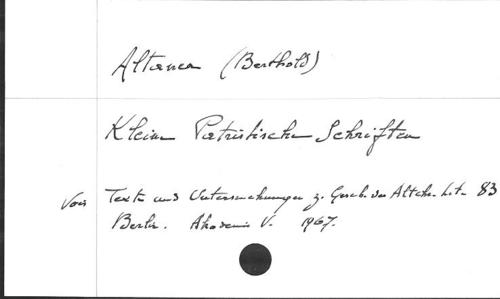 Altaner (Berthold)
Kleine Patristische Schriften
Voir Texte und Untersuchungen z. Gesch. der Altchr. Lit. 83
Berlin. Akademie V. 1967.